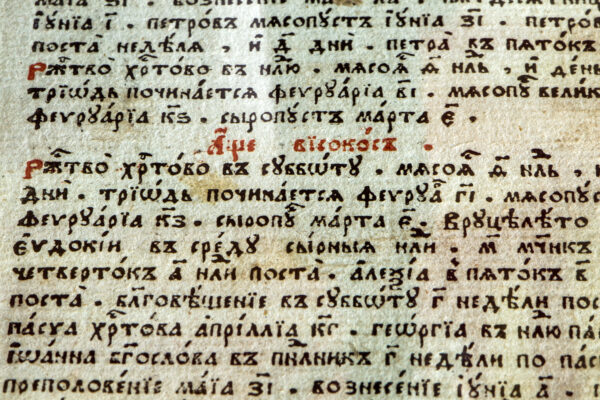 іꙋ́нїа і҃. петро́въ мѧсопꙋстъ іꙋ́нїа з҃і. петро́в
поста̀ недѣ́лѧ, и҆ д҃ дни̑. петра̀ въ пѧто́къ
Рж҃тво̀ хр҃то́во въ нл҃ю. мѧсоѧ́ д҃ нл҃ь, и҆ де́нь
трїѡ́дь почина́етсѧ феурꙋа́рїа в҃і. мѧсопꙋ вели́к
феурꙋа́рїа к҃з. сыропꙋ́стъ ма́рта є҃.
А҆́ще високо́съ.
Рж҃тво̀ хр҃то́во въ сꙋббѡ́тꙋ. мѧсоѧ́ д҃ нл҃ь, и҆
дни̑. трїѡ́дь почина́етсѧ феурꙋа́ г҃і. мѧсопꙋс
феурꙋа́рїа к҃з. сыропꙋ́ ма́рта є҃. Врꙋцѣлѣ́то
Єѵдокі́и въ сре́дꙋ сы́рныѧ нл҃и. м҃ мч҃никъ
четверто́къ а҃ нл҃и поста̀. але́ѯїа в пѧто́къ в҃
поста̀. бл҃говѣ́щенїе въ сꙋббѡ́тꙋ г҃ недѣ́ли пос
па́сха хр҃то́ва а҆прі́ллїа к҃г. геѡ́ргїа въ нл҃ю па
і҆ѡа́нна бг҃осло́ва въ пн҃лникъ г҃ недѣ́ли по пас
преполове́нїе ма́їа з҃і. вознесе́нїе іꙋ́нїа а҃.